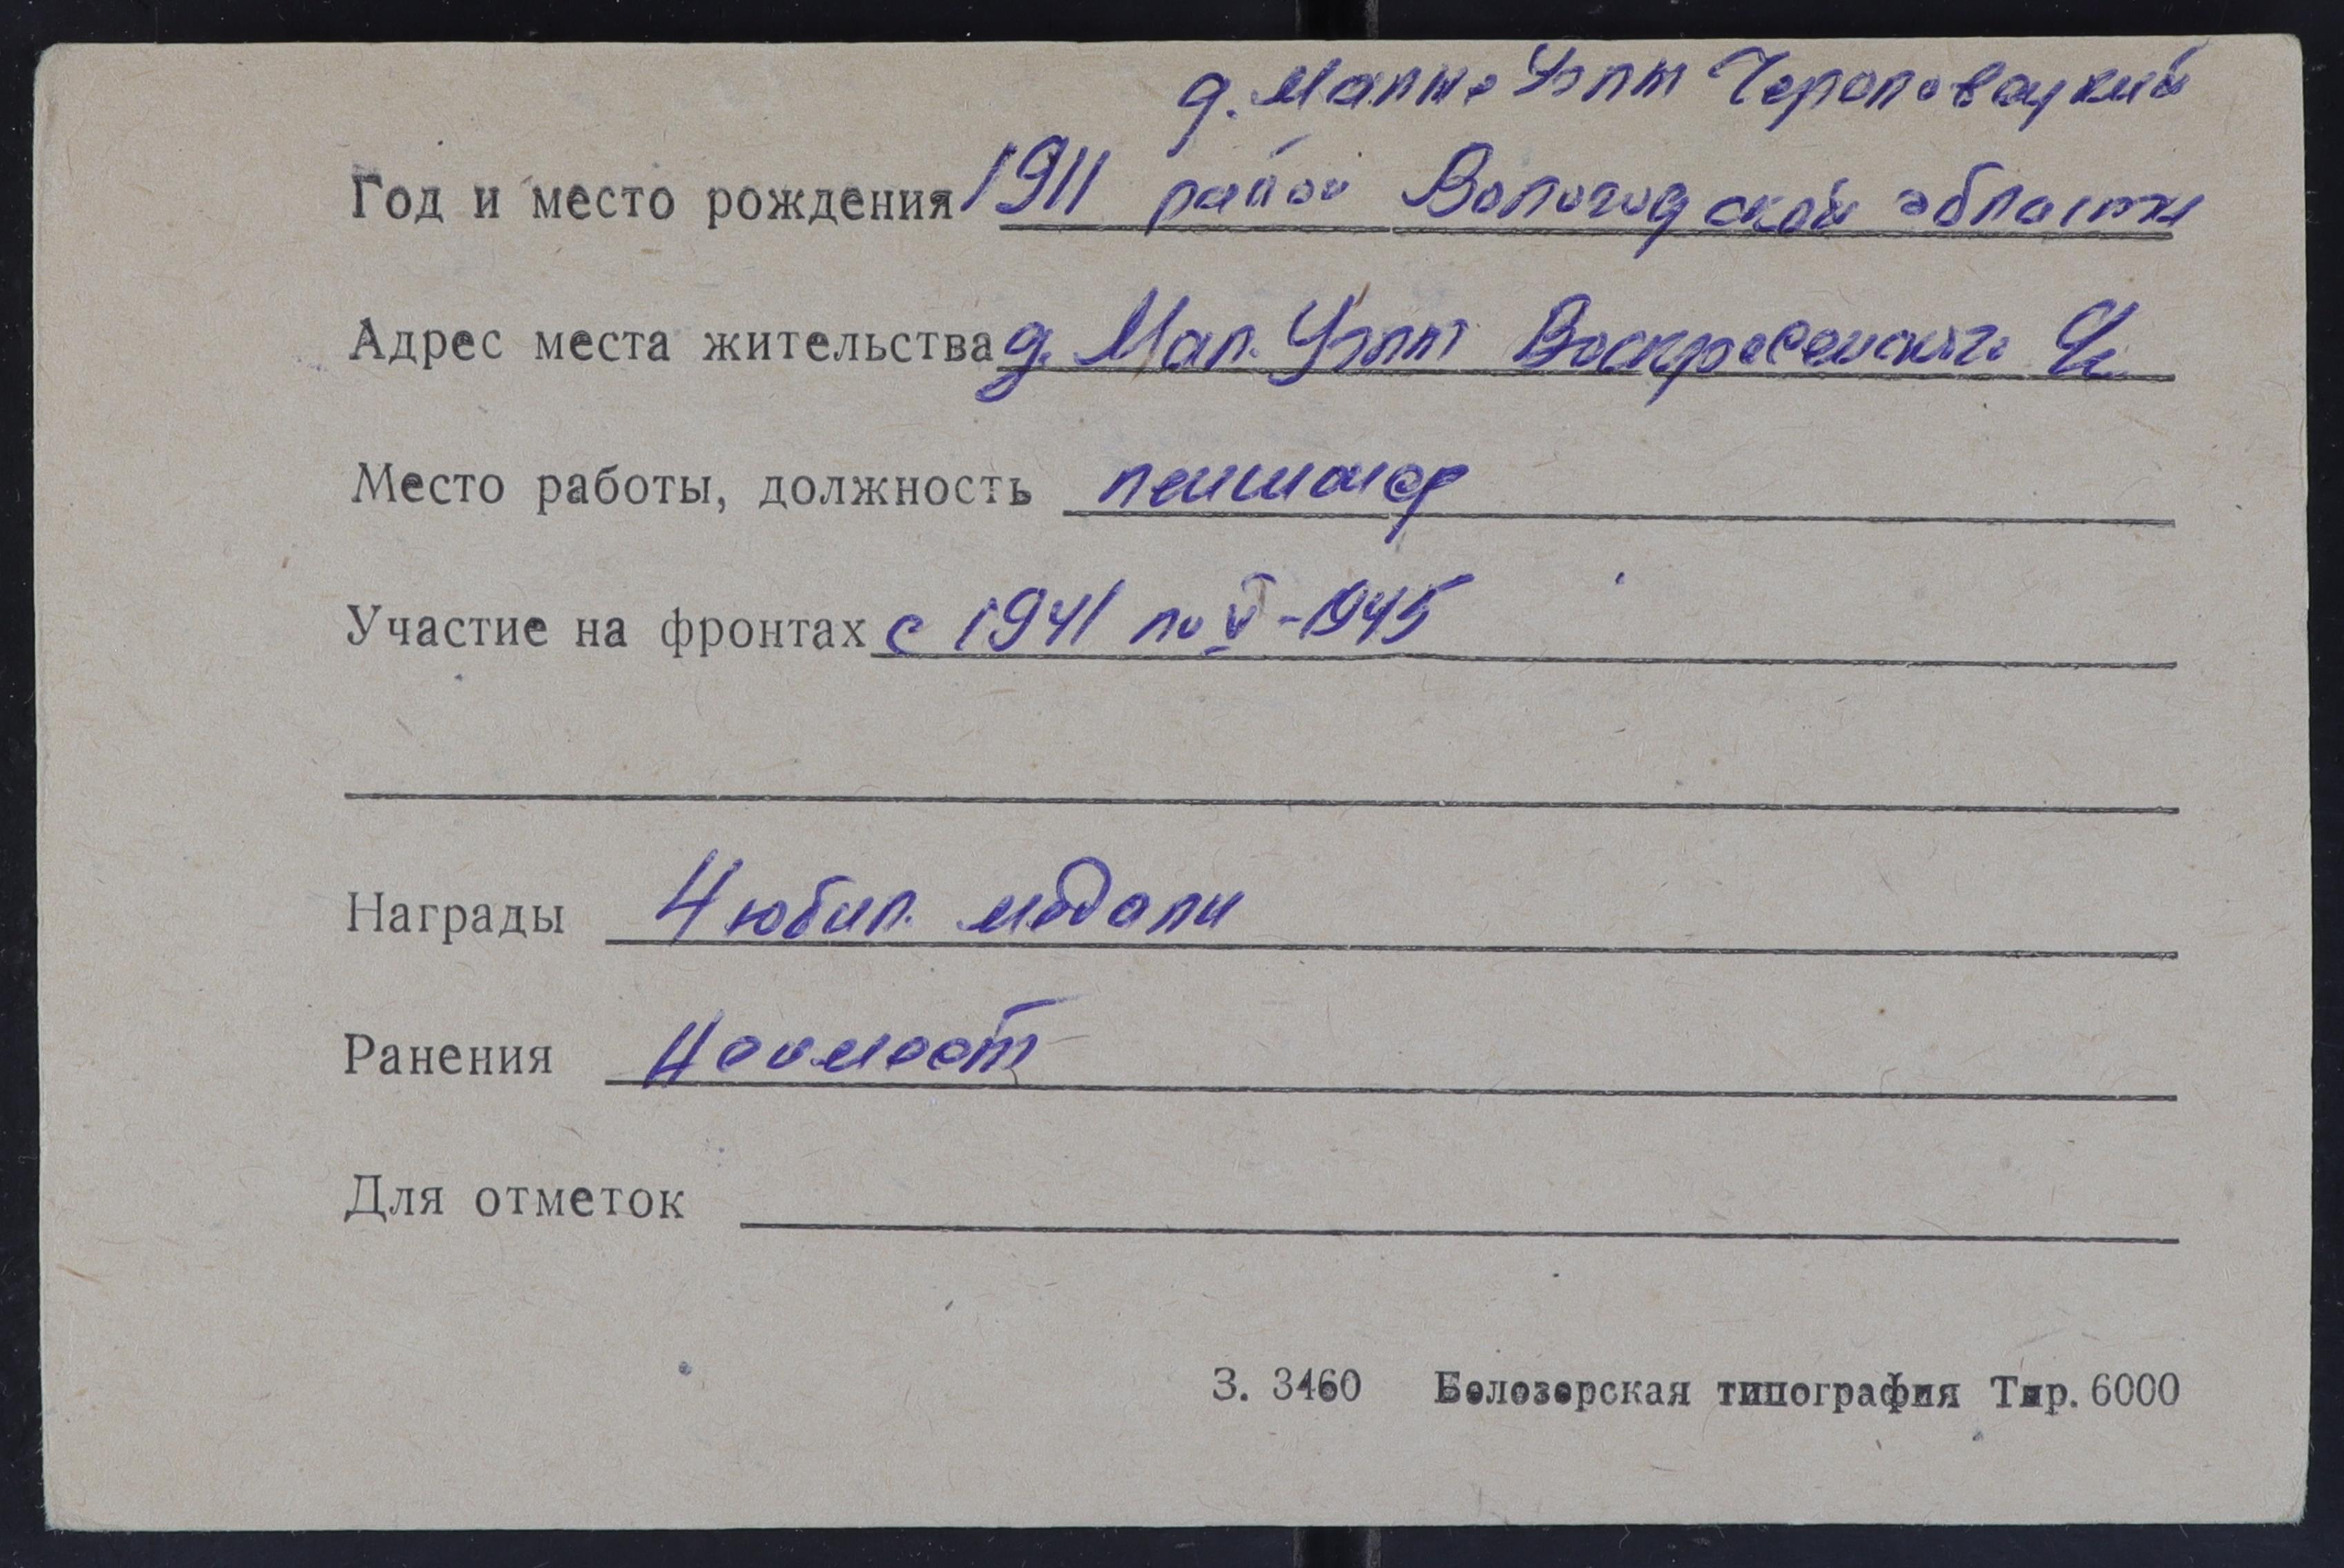 д. Малые Углы Череповецкий
Год и место рождения 1911 район Вологодской области
Адрес места жительства д. Мал. Воскресенского
Место работы, должность пенсионер
Участие на фронтах с 1941 по V-1945
Награды 4 юбил. медали
Ранения Не имеет
Для отметок
З. 3460 Белозерская типография Тир. 6000